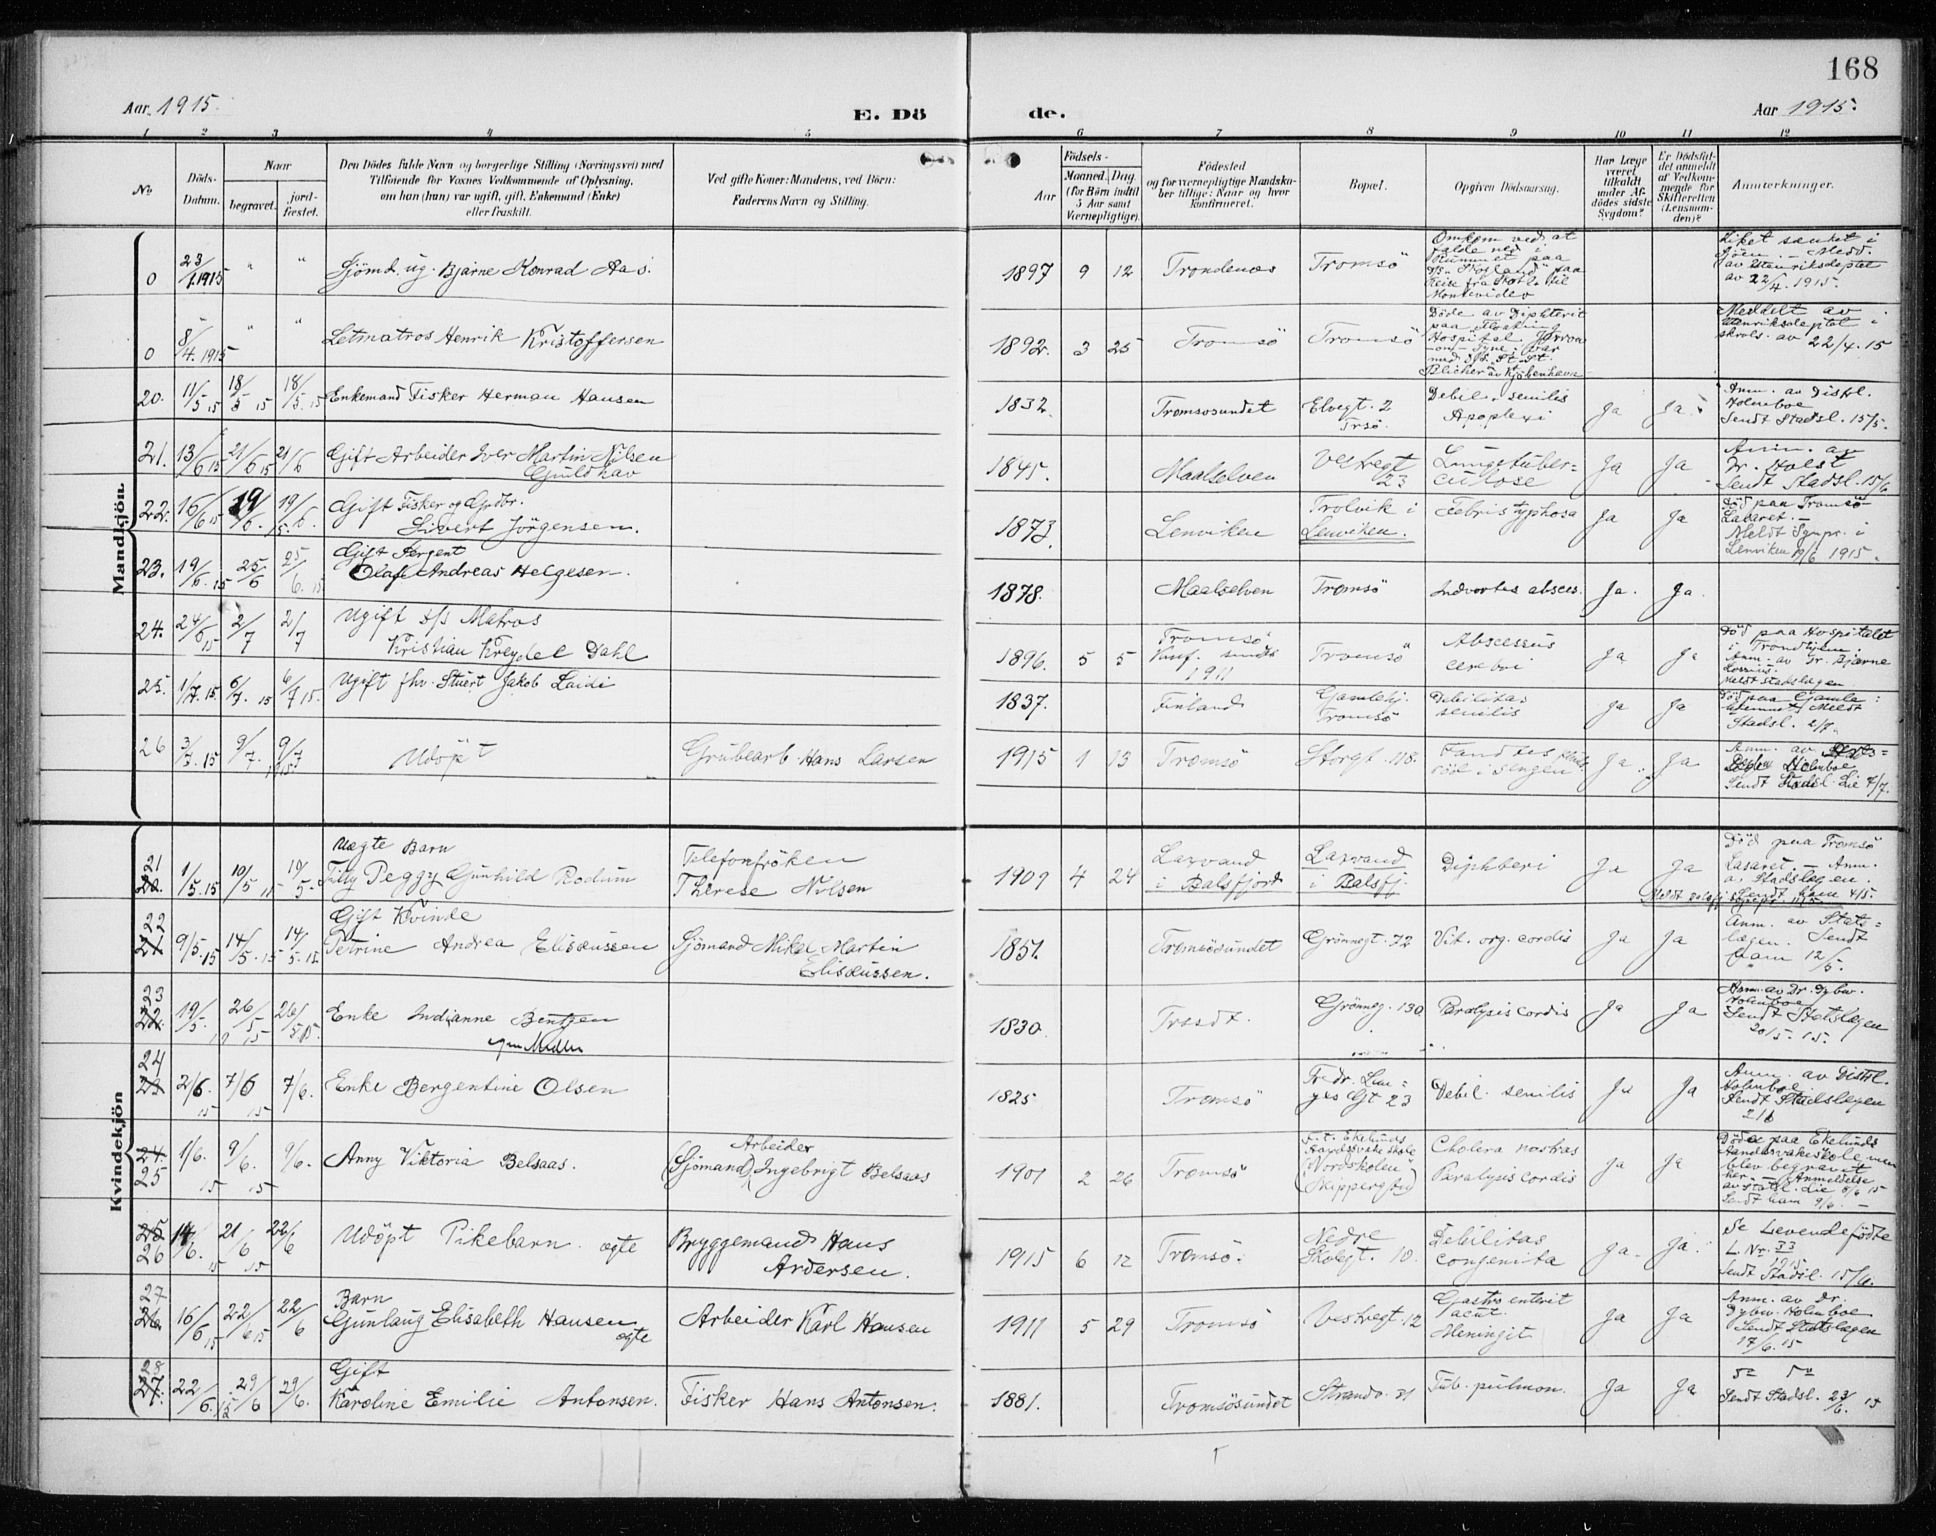 168
Aar 1915.
E. Dö
de.
Aar 1915.
1 2 3 4 5 6 7 8 9 10 11 12
No
Döds-
Datum.
Naar
begravet.
jord-
fæstet.
Den Dödes fulde Navn og borgerlige Stilling (Næringsvei) med
Tilföiende for Voxnes Vedkommende af Oplysning,
om han (hun) var ugift, gift, Enkemand (Enke)
eller fraskilt.
Ved gifte Koner: Mandens, ved Börn:
Faderens Navn og Stilling.
Födsels-
Aar
Maaned.
Dag.
(for Börn indtil
5 Aar samt
Værnepligtige).
Födested
og for værnepligtige Mandska-
ber tillige: Naar og hvor
konfirmeret.
Bopæl.
Opgiven Dödsaarsag.
Har Læge
været
tilkaldt
under Af-
dödes sidste
Sygdom?
Er Dödsfal-
det anmeldt
af Vedkom-
mende for
Skifteretten
(Lensman-
den)?
Anmærkninger.
Mandkjön.
0 23/1 1915 " " Sjömd. ug. Bjarne Konrad Aas. 1897 9 12 Trondenæs Tromsö
Omkom ved at
falde ned i
Rummet paa
Montevideo
Liket sænket i
Sjöen. - Medd.
av Utenriksdeptet
av 22/4. 1915.
0 8/4. 1915 " " Letmatros Henrik Kristoffersen 1892. 3 25 Tromsö Tromsö
Döde av Diphterit
paa
Hospital
Blicher" av Kjöbenhavn
Meddelt av
Utenriksdeptet i
skrols. av 22/4. 15
20. 11/5 15 18/5 15 18/5. 15 Enkemand Fisker Herman Hansen 1832. Tromsosundet Elvegt. 2
Trsö.
Debil. senilis
Apoplexi
Ja Ja
Anm. av Distl.
Holmboe
Sendt Stadsl. 15/5.
21. 13/6 15 21/6 15 21/6 Gift Arbeider Iver Martin Nilsen
Guldhav
1845. Maalselven Vestregt
23
Lungetuber-
culose
Ja Ja
Anm. av
Dr. Holst
Sendt Stadsl. 15/6
22. 16/6 15 19/6. 19/6. 15 Gift Fisker og Grdbr.
Sivert Jörgensen.
1873. Lenviken Trolvik i
Lenviken.
Febris typhosa Ja Ja
Död paa Tromsö
Lasaret. -
Meldt Sognpr. i
Lenviken 19/6 1915.
23. 19/6. 15 25/6 25/6. 15 Gift Sergent
Olaf Andreas Helgesen.
1878. Maalselven Tromsö Indvortes absces. Ja. Ja.
24. 24/6 15 2/7 2/7 Ugift s/s Matros
Kristian Kreydel Dahl
1896. 5 5 Tromsö
Konf. sinds
1911
Tromsö
Abscessus
cerebri
Ja Ja
Död paa Hospitalet
i Trondhjem.
Anm. av Dr. Bjarne
meldt Stadslægen
25. 1/7. 15 6/7. 15 6/7 15. Ugift fhv. Stuert Jakob Laiti 1837. Finland Gamlehj.
Tromsö
Debilitas
senilis
Ja Ja
Död paa Gamle-
hjemmet Meldt
Stadsl. 2/7.
26 3/7. 15 9/7. 9/7 1915 Udöpt Grubearb. Hans Larsen 1915 1 13 Tromsö Storgt. 118.
Fandtes
död i Sengen
Ja. Ja
Anm. av
Holmboe
Sendt Stadsl. Lie 4/7.
Kvindekjön
21
20. 1/5. 15 10/5 15 10/5. Uægte Barn
Tilly Peggy Gunhild Rodum Telefonfröken
Therese Nilsen
1909 4 24 Laxvand
i Balsfjord
Laxvand
i Balsfj.
Diphteri Ja Ja
Död paa Tromsö
Lasaret. - Anm.
a. Stadslægen.
Sendt ham 4/5.
22
21. 9/5. 15 14/5. 15 14/5. 15 Gift Kvinde
Petrine Andrea Elisæussen Sjömand Mikal Martin
Elisæussen.
1851. Tromsösundet Grönnegt. 72 Vit. org. cordis Ja Ja
Anm. av Stats-
lægen. Sendt
ham 12/5.
23
22. 19/5. 19 26/5 15 26/5 15. Enke Indianne Bentzen
1830. Trssdt. Grönneg. 130 Paralysis cordis Ja Ja
Anm. av Dr. Dybw.
Holmboe
Sendt Statslægen
20/5. 15.
24
23 2/6. 15 7/6 15 7/6. Enke Bergentine Olsen 1825 Tromsö Fredr. Lan-
ges Gt 23
Debil. senilis Ja Ja
Anm. av Distl.
Holmboe
Sendt Stadslægen
2/6
24.
25 1/6. 15 9/6. 15 9/6. Anny Viktoria Belsaas. Arbeider
(Sjömand) Ingebrigt Belsaas
1901 2 26 Tromsö
F. t. Ekelunds
(Nordskolen
Skippergtn)
Cholera nostras
Paralysis cordis
Ja Ja
Döde paa Ekelunds
Aandssvakeskole men
blev begravet
her. - Anmeldelse
av statsl. Lie 8/6 15
Sendt ham 9/6. -
25
26 14/6. 15 21/6 15 22/6 Udöpt Pikebarn. ægte Bryggemand Hans
Andersen.
1915 6 12 Tromsö. Nedre
Skolegt. 10.
Debilitas
congenita
Ja. Ja.
Se Levendefödte
L. Nr. 33
1915.
Sendt Stadsl. 15/6.
27
26. 16/6 15 22/6 15 22/6 Barn
Gunlaug Elisabeth Hansen
ægte
Arbeider Karl Hansen 1911 5 29 Tromsö Vestregt. 12
Gastro enterit
acut.
Meningit
Ja Ja
Anm. av Dr.
Dybw. Holmboe
Sendt Statslægen
17/6. 15
28
27. 22/6. 15 29/6 29/6. Gift
Karoline Emilie Antonsen. Fisker Hans Antonsen. 1881. Tromsösundet Strandv. 21 Tub. pulmon. Ja Ja
Sendt Stadsl. 23/6. 15